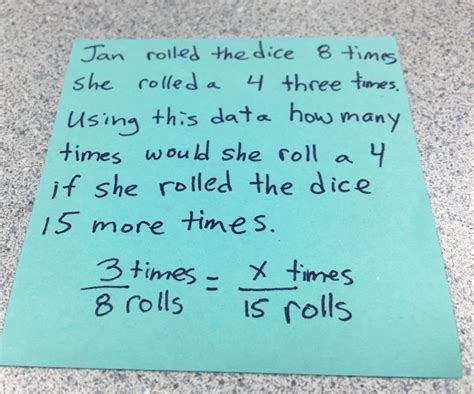 Jan rolled the dice 8 times
she rolled a 4 three times.
Using this data how many
times would she roll a 4
if she rolled the dice
15 more times.
3 times = x times
8 rolls 15 rolls